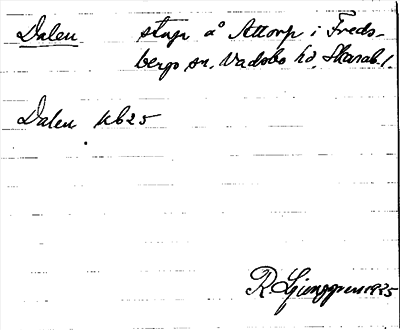 Dalen stuga å Attorp i Freds-
bergs sn, Vadsbo hd, Skarab. l.
Dalen kb25
R. Ljunggren 1925